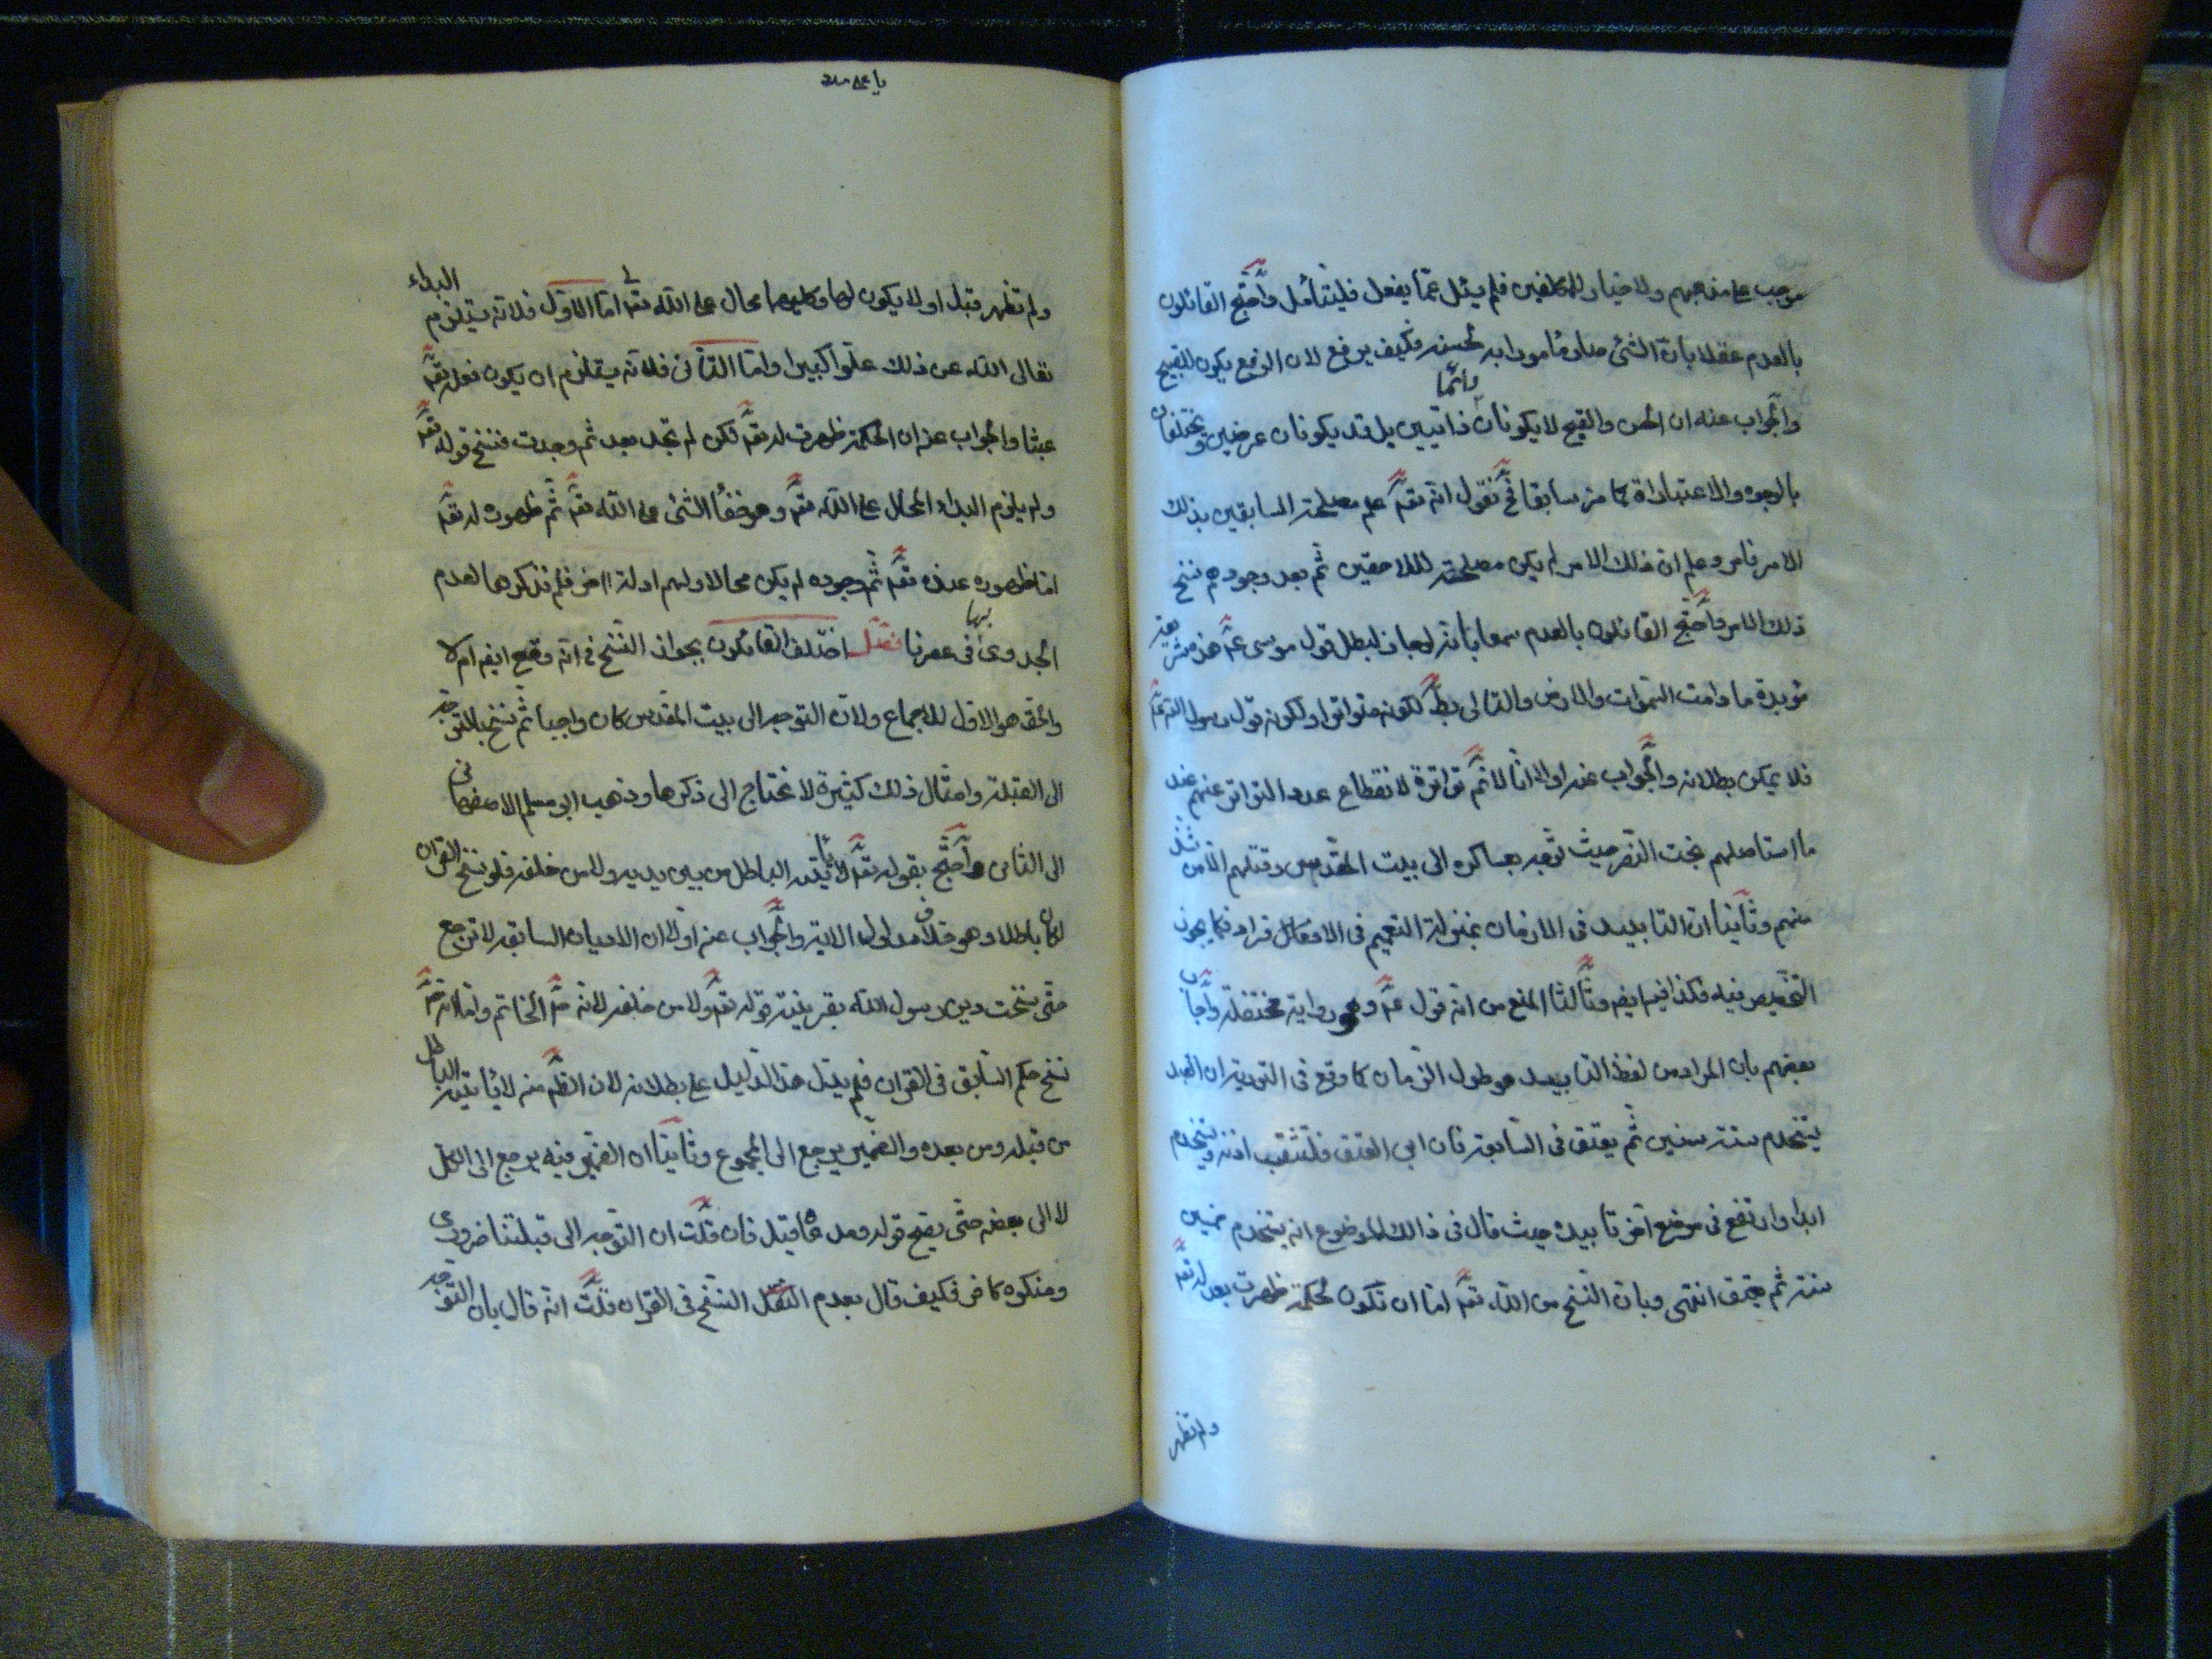 موجب على مذهبهم ولا خيار للمكلفين فلم يسئل عما يفعل فليتأمل واحتج القائلون
بالعدم عقلا بان الشئ صار مأمورا به لحسنه فكيف يرفع لان الرفع يكون للقبيح
والجواب عنه ان الحسن والقبح لا يكونان دائما ذاتيين بل قد يكونان عرضيين ويختلفان
بالوجوه والاعتبارات كما مر سابقا فح نقول انه تعم علم مصلحة السابقين بذلك
الامر فامر وعلم ان ذلك الامر لم يكن مصلحة لللاحقين ثم بعد وجودهم نسخ
ذلك الامر واحتج القائلون بالعدم سمعا بانه لو جاز لبطل قول موسى عم هذه شريعة
مؤبدة ما دامت السموات والارض والتالى بط لكونه متواترا ولكونه قول رسول الله عم
فلا يمكن بطلانه والجواب عنه اولا انا لا نم تواترة لانقطاع عدد التواتر عنهم عند
ما استاصلهم بخت النصر حيث توجه بعساكره الى بيت المقدس وقتلهم
منهم وثانيا ان التابيد فى الازمان بمنزلة التعميم فى الافراد فكما يجوز
التخصيص فيه فكذا فيه ايضا وثالثا المنع من انه قول عم وهو رواية مختلقة واجاب
بعضهم بان المراد من لفظ التابيد هو طول الزمان كما وقع فى التورية ان العبد
يستخدم ستة سنين ثم يعتق فى السابعة فان ابى العتق فلتثقب اذنه ويستخدم
ابدا وارتفع فى موضع آخر تابيده حيث قال فى ذلك الموضوع انه يستخدم خمسين
سنة ثم يعتق انتهى وبان النسخ من الله تعم اما ان تكون لحكمة ظهرت بعد له تعم
ولم تظهر
يا على مدد
ولم تظهر قبل او لا يكون لها وكليهما محال على الله تعم اما الاول فلانه يستلزم البداء
تعالى الله عن ذلك علوا كبيرا واما الثانى فلانه يستلزم ان يكون فعله تعم
عبثا والجواب عنه ان الحكمة ظهرت له تعم لكن لم تجد بعد ثم وجدت فنسخ قوله تعم
ولم يلزم البداء المحال على الله تعم وهو خفأ الشئ على الله تعم ثم ظهوره له تعم
اما ظهوره عنده تعم ثم وجوده لم يكن محالا ولهم ادلة اخر فلم نذكرها لعدم
الجدوى بها فى عصرنا فصل اختلف القائلون بجواز النسخ فى انه وقع ايضا ام لا
والحق هو الاول للاجماع ولان التوجه الى بيت المقدس كان واجبا ثم نسخ بالتوجه
الى القبلة وامثال ذلك كثيرة لا نحتاج الى ذكرها وذهب ابو مسلم الاصفهانى
الى الثانى واحتج بقوله تعم لا يأتيه الباطل من بين يديه ولا من خلفه فلو نسخ القران
لكان باطلا وهو خلاف مدلول الاية والجواب عنه اولا ان الاديان السابقة لا ترجع
حتى نسخت دين رسول الله بقرينة قوله تعم ولا من خلفه لانه ص الخاتم واما
نسخ حكم السابق فى القران فلم يدل هذا الدليل على بطلانه لان الظم منه لا يأتيه الباطل
من قبله ومن بعده والضمير يرجع الى المجموع وثانيا ان الضمير فيه يرجع الى الكل
لا الى بعضه حتى يصح قوله ومدعاه قيل فان قلت ان التوجه الى قبلتنا ضرورى
ومنكره كافر فكيف قال بعدم النسخ فى القران قلت انه قال بان التوجه